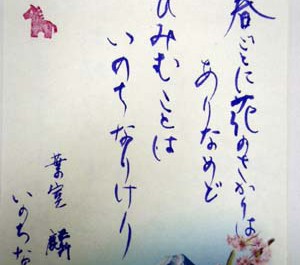 春ごとに花のさかりは
ありなめど
ひみむことは
いのちなりけり
葉室 麟
いのちな